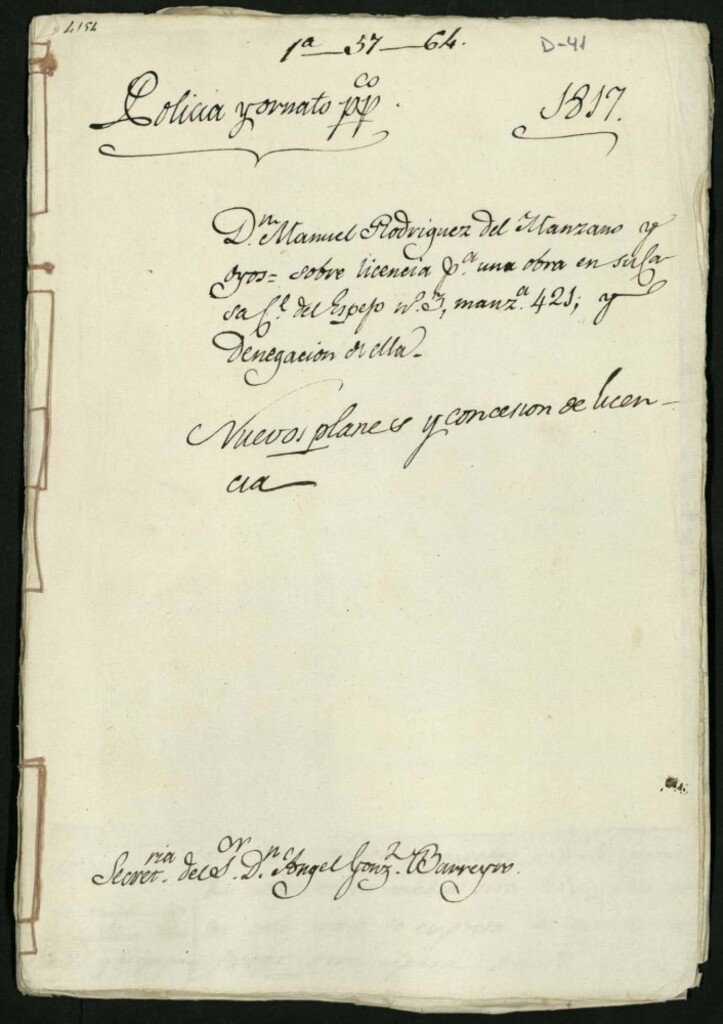 4154
1ª—57—64.
D-41
Policia y ornato ppco.
1817.
Dn. Manuel Rodriguez del Manzano y
otros= sobre licencia pª. una obra en su Ca
sa Ce. del Espejo nº. 3, manzª. 421; y
Denegacion de ella.
Nuevos planes y concesion de licen-
cia
Secretria. del Sor. Dn. Angel Gonzz. Barreyro.